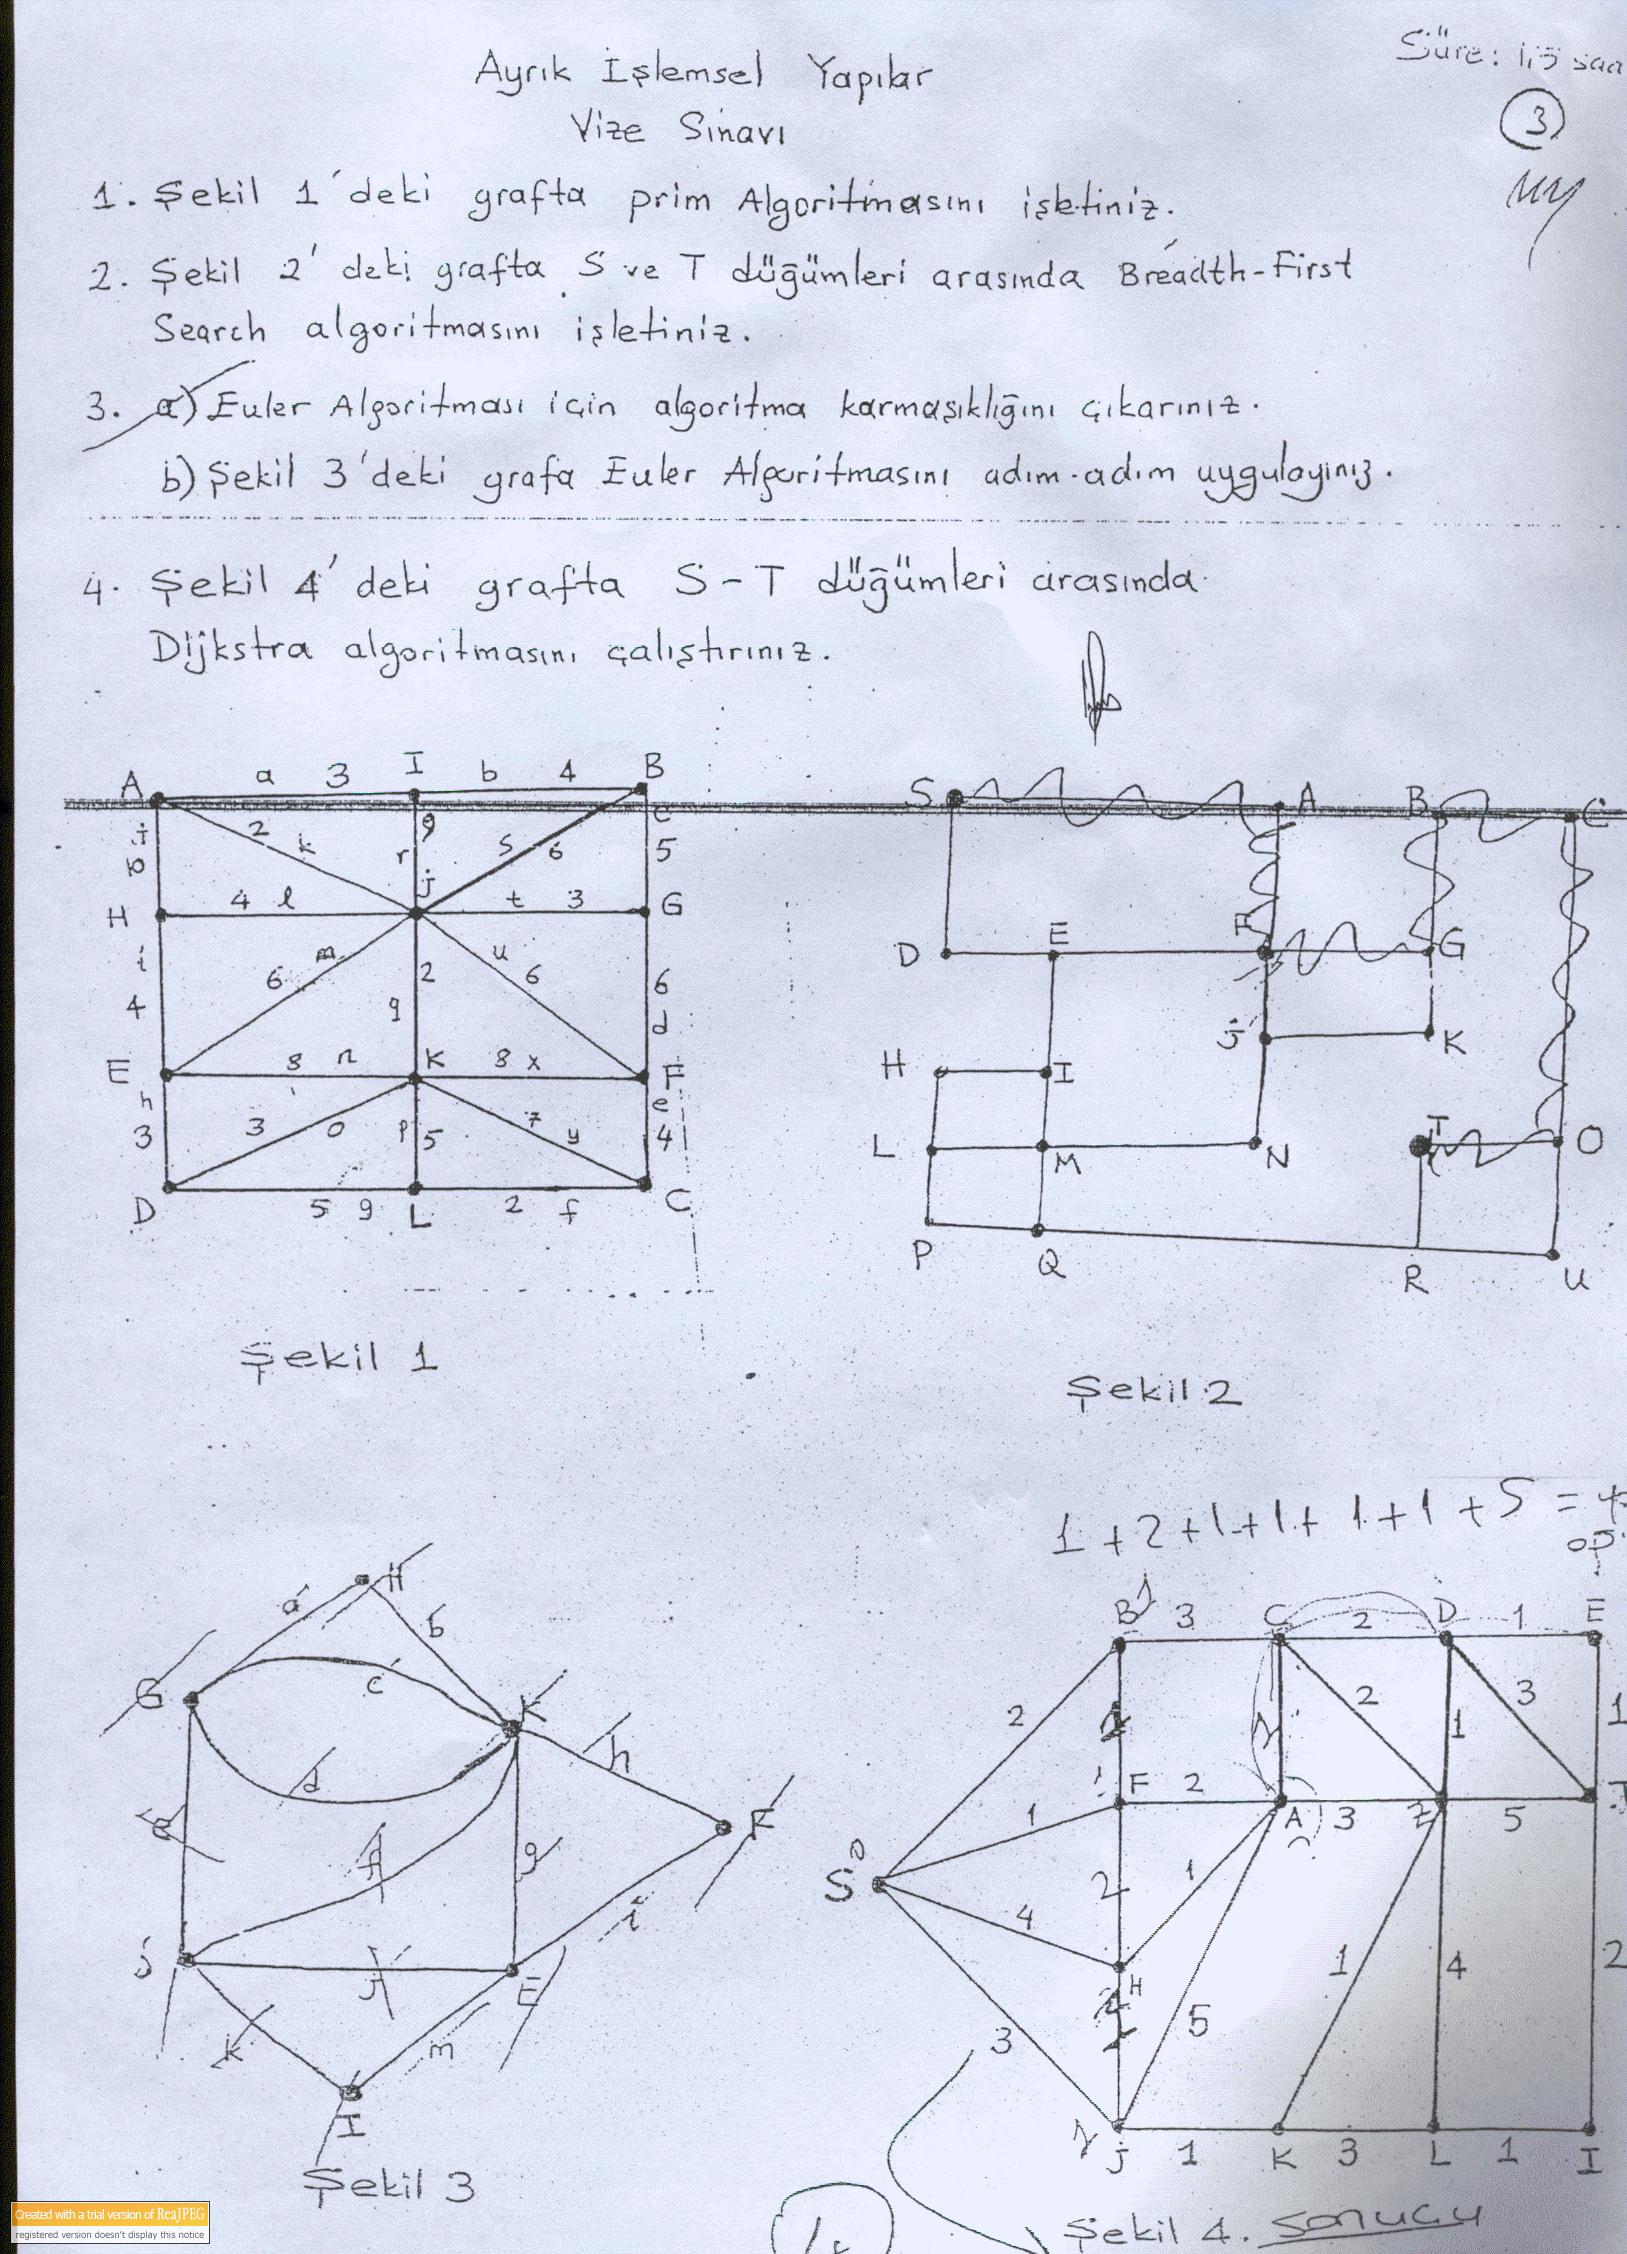 Süre: 1,5 saa
Ayrık İşlemsel Yapılar
3
Vize Sınavı
1. Şekil 1'deki grafta prim Algoritmasını işletiniz.
2. Şekil 2'deki grafta S ve T düğümleri arasında Breadth-First
Search algoritmasını işletiniz.
3. a) Euler Algoritması için algoritma karmaşıklığını çıkarınız.
b) Şekil 3'deki grafa Euler Algoritmasını adım-adım uygulayınız.
4. Şekil 4'deki grafta S-T düğümleri arasında
Dijkstra algoritmasını çalıştırınız.
A a 3 I b 4 B
2 k 9 r s 6 c 5
j
H 4 l t 3 G
i 4 6 m 2 q u 6 6 d
E 8 n K 8 x F
h 3 3 o p 5 7 y e 4
D 5 g L 2 f C
Şekil 1
S A B C
D E F G
J K
H I
L M N T O
P Q R U
Şekil 2
1 + 2 + 1 + 1 + 1 + 1 + 5 =
H
a b
G c K
d h
F
f g i
J j E
k m
I
Şekil 3
B 3 C 2 D 1 E
2 2 3 1
1
F 2 A 3 Z 5 T
1
S 0
2 1
4 H
3 5 1 4 2
J 1 K 3 L 1 I
Şekil 4. sonucu
Created with a trial version of ReaJPEG
registered version doesn't display this notice